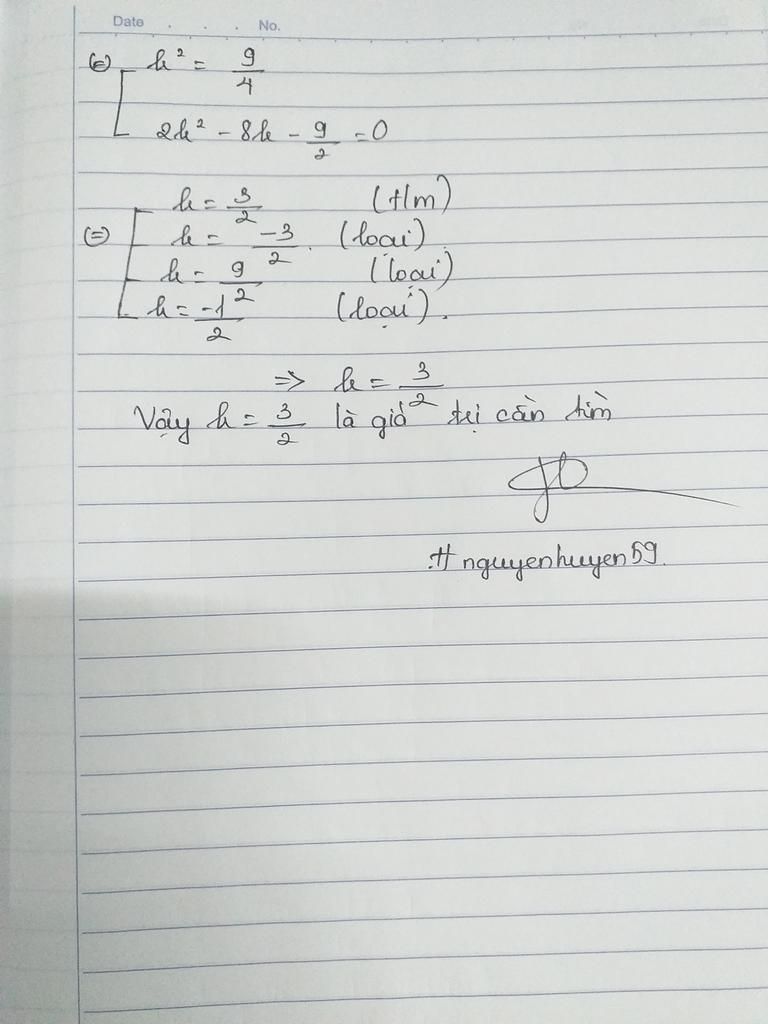 Date . . . No.
(=) k² = 9/4
2k² - 8k - 9/2 = 0
k = 3/2 (t/m)
(=) k = -3/2. (loại)
k = 9/2 (loại)
k = -1/2 (loại).
=> k = 3/2
Vậy k = 3/2 là giá trị cần tìm
# nguyenhuyen59.